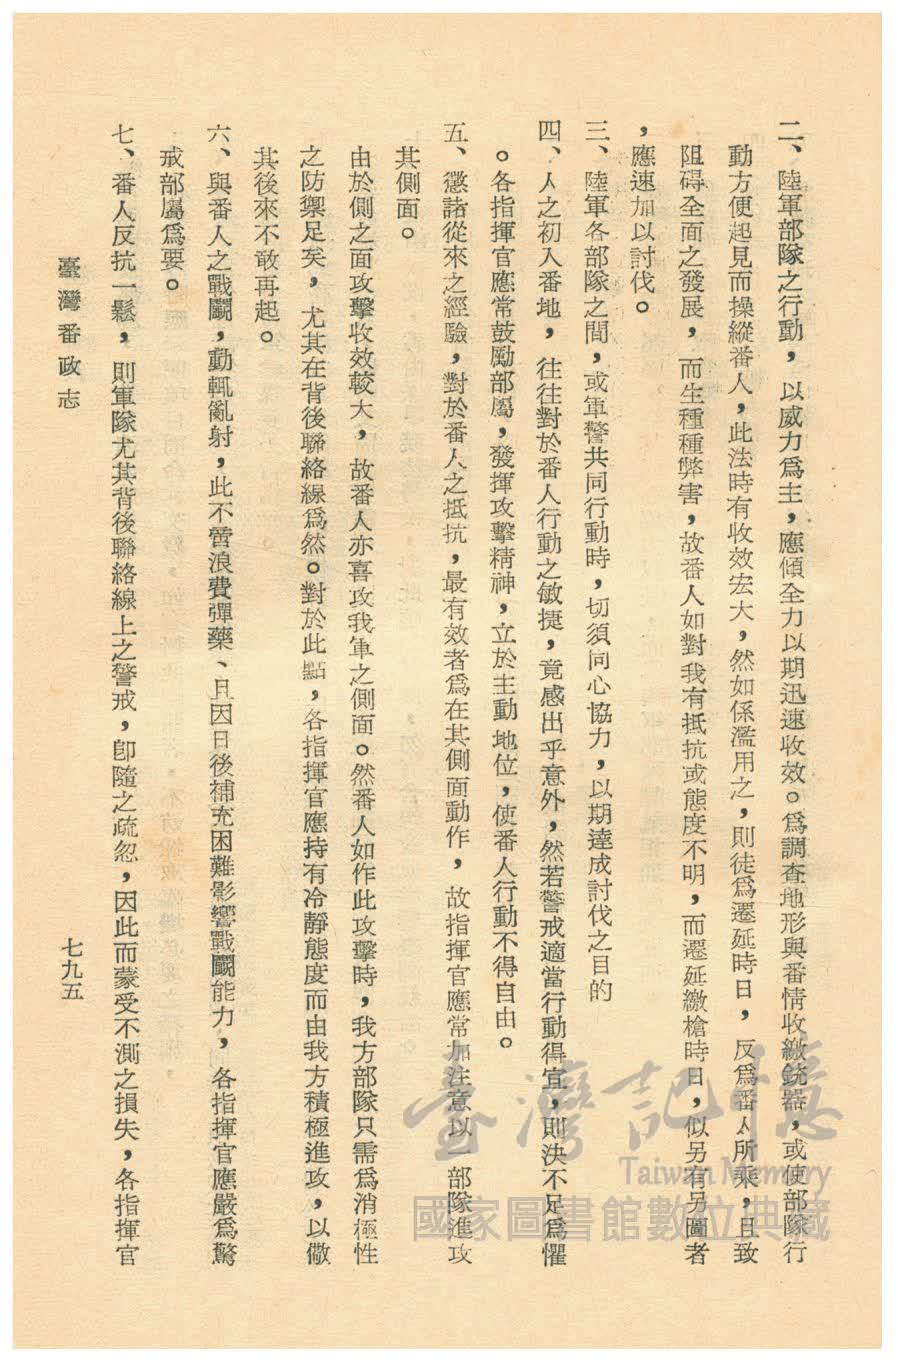 二、陸軍部隊之行動，以威力爲主，應傾全力以期迅速收效。爲調查地形與番情收繳銃器，或使部隊行
動方便起見而操縱番人，此法時有收效宏大，然如係濫用之，則徒爲遷延時日，反爲番人所乘，且致
阻碍全面之發展，而生種種弊害，故番人如對我有抵抗或態度不明，而遷延繳槍時日，似另有另圖者
，應速加以討伐。
三、陸軍各部隊之間，或軍警共同行動時，切須同心協力，以期達成討伐之目的
四、人之初入番地，往往對於番人行動之敏捷，竟感出乎意外，然若警戒適當行動得宜，則決不足爲懼
。各指揮官應常鼓勵部屬，發揮攻擊精神，立於主動地位，使番人行動不得自由。
五、懲諸從來之經驗，對於番人之抵抗，最有效者爲在其側面動作，故指揮官應常加注意以一部隊進攻
其側面。
由於側之面攻擊收效較大，故番人亦喜攻我軍之側面。然番人如作此攻擊時，我方部隊只需爲消極性
之防禦足矣，尤其在背後聯絡線爲然。對於此點，各指揮官應持有冷靜態度而由我方積極進攻，以儆
其後來不敢再起。
六、與番人之戰鬭，動輒亂射，此不啻浪費彈藥、且因日後補充困難影響戰鬭能力，各指揮官應嚴爲驚
戒部屬爲要。
七、番人反抗一鬆，則軍隊尤其背後聯絡線上之警戒，卽隨之疏忽，因此而蒙受不測之損失，各指揮官
臺灣番政志
七九五
臺灣記憶
Taiwan Memory
國家圖書館數位典藏